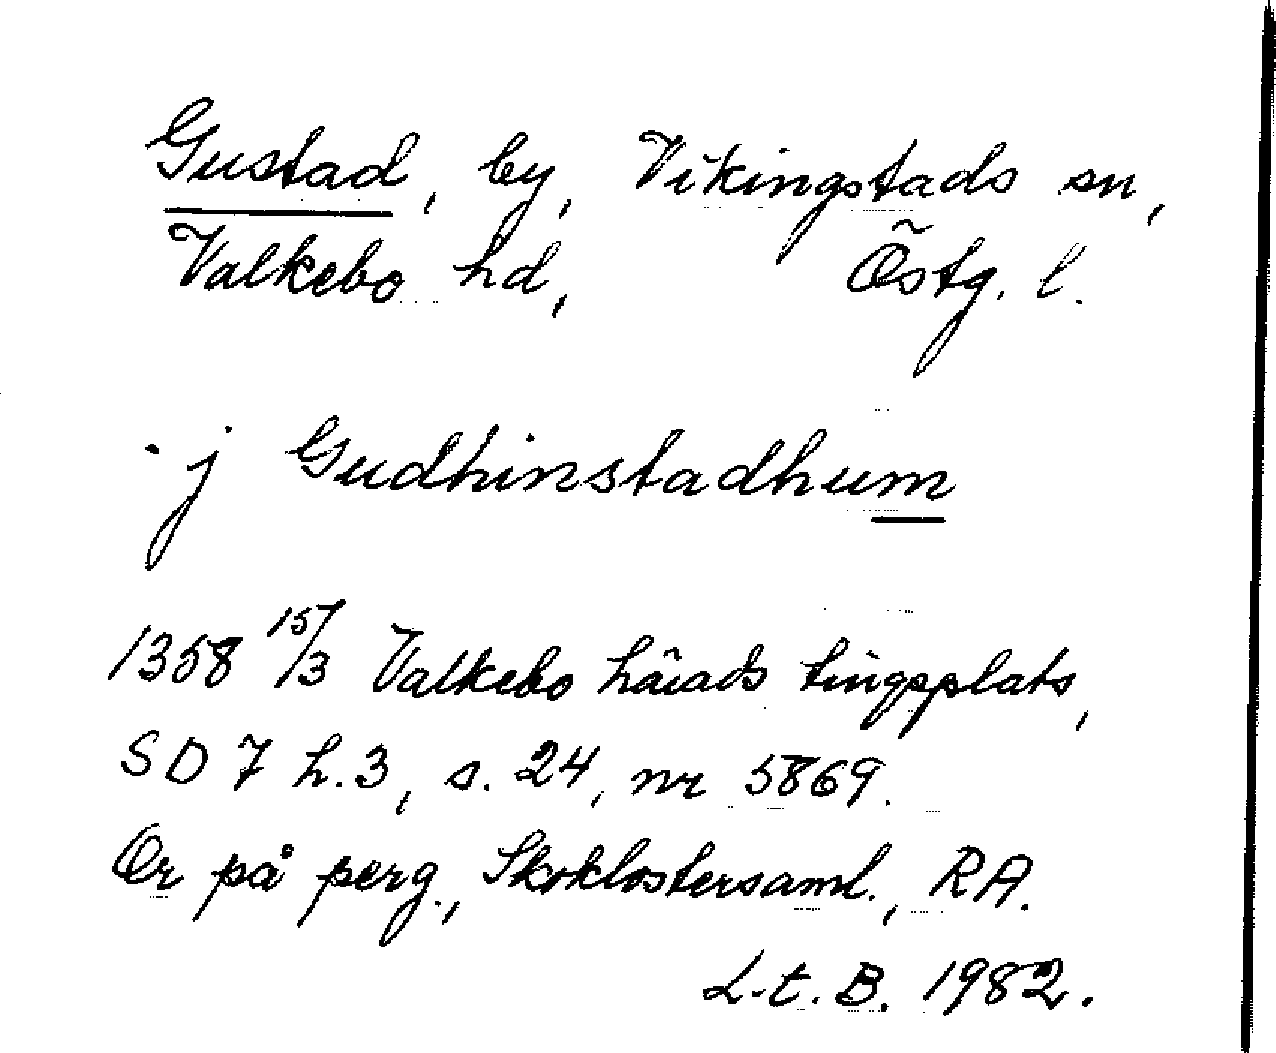 Gustad, by, Vikingstads sn,
Valkebo hd, Östg. l.
j Gudhinstadhum
1358 15/3 Valkebo härads tingsplats,
SD 7 h.3, s. 24, nr 5869.
Or på perg., Skoklostersaml., RA.
L.t.B. 1982.